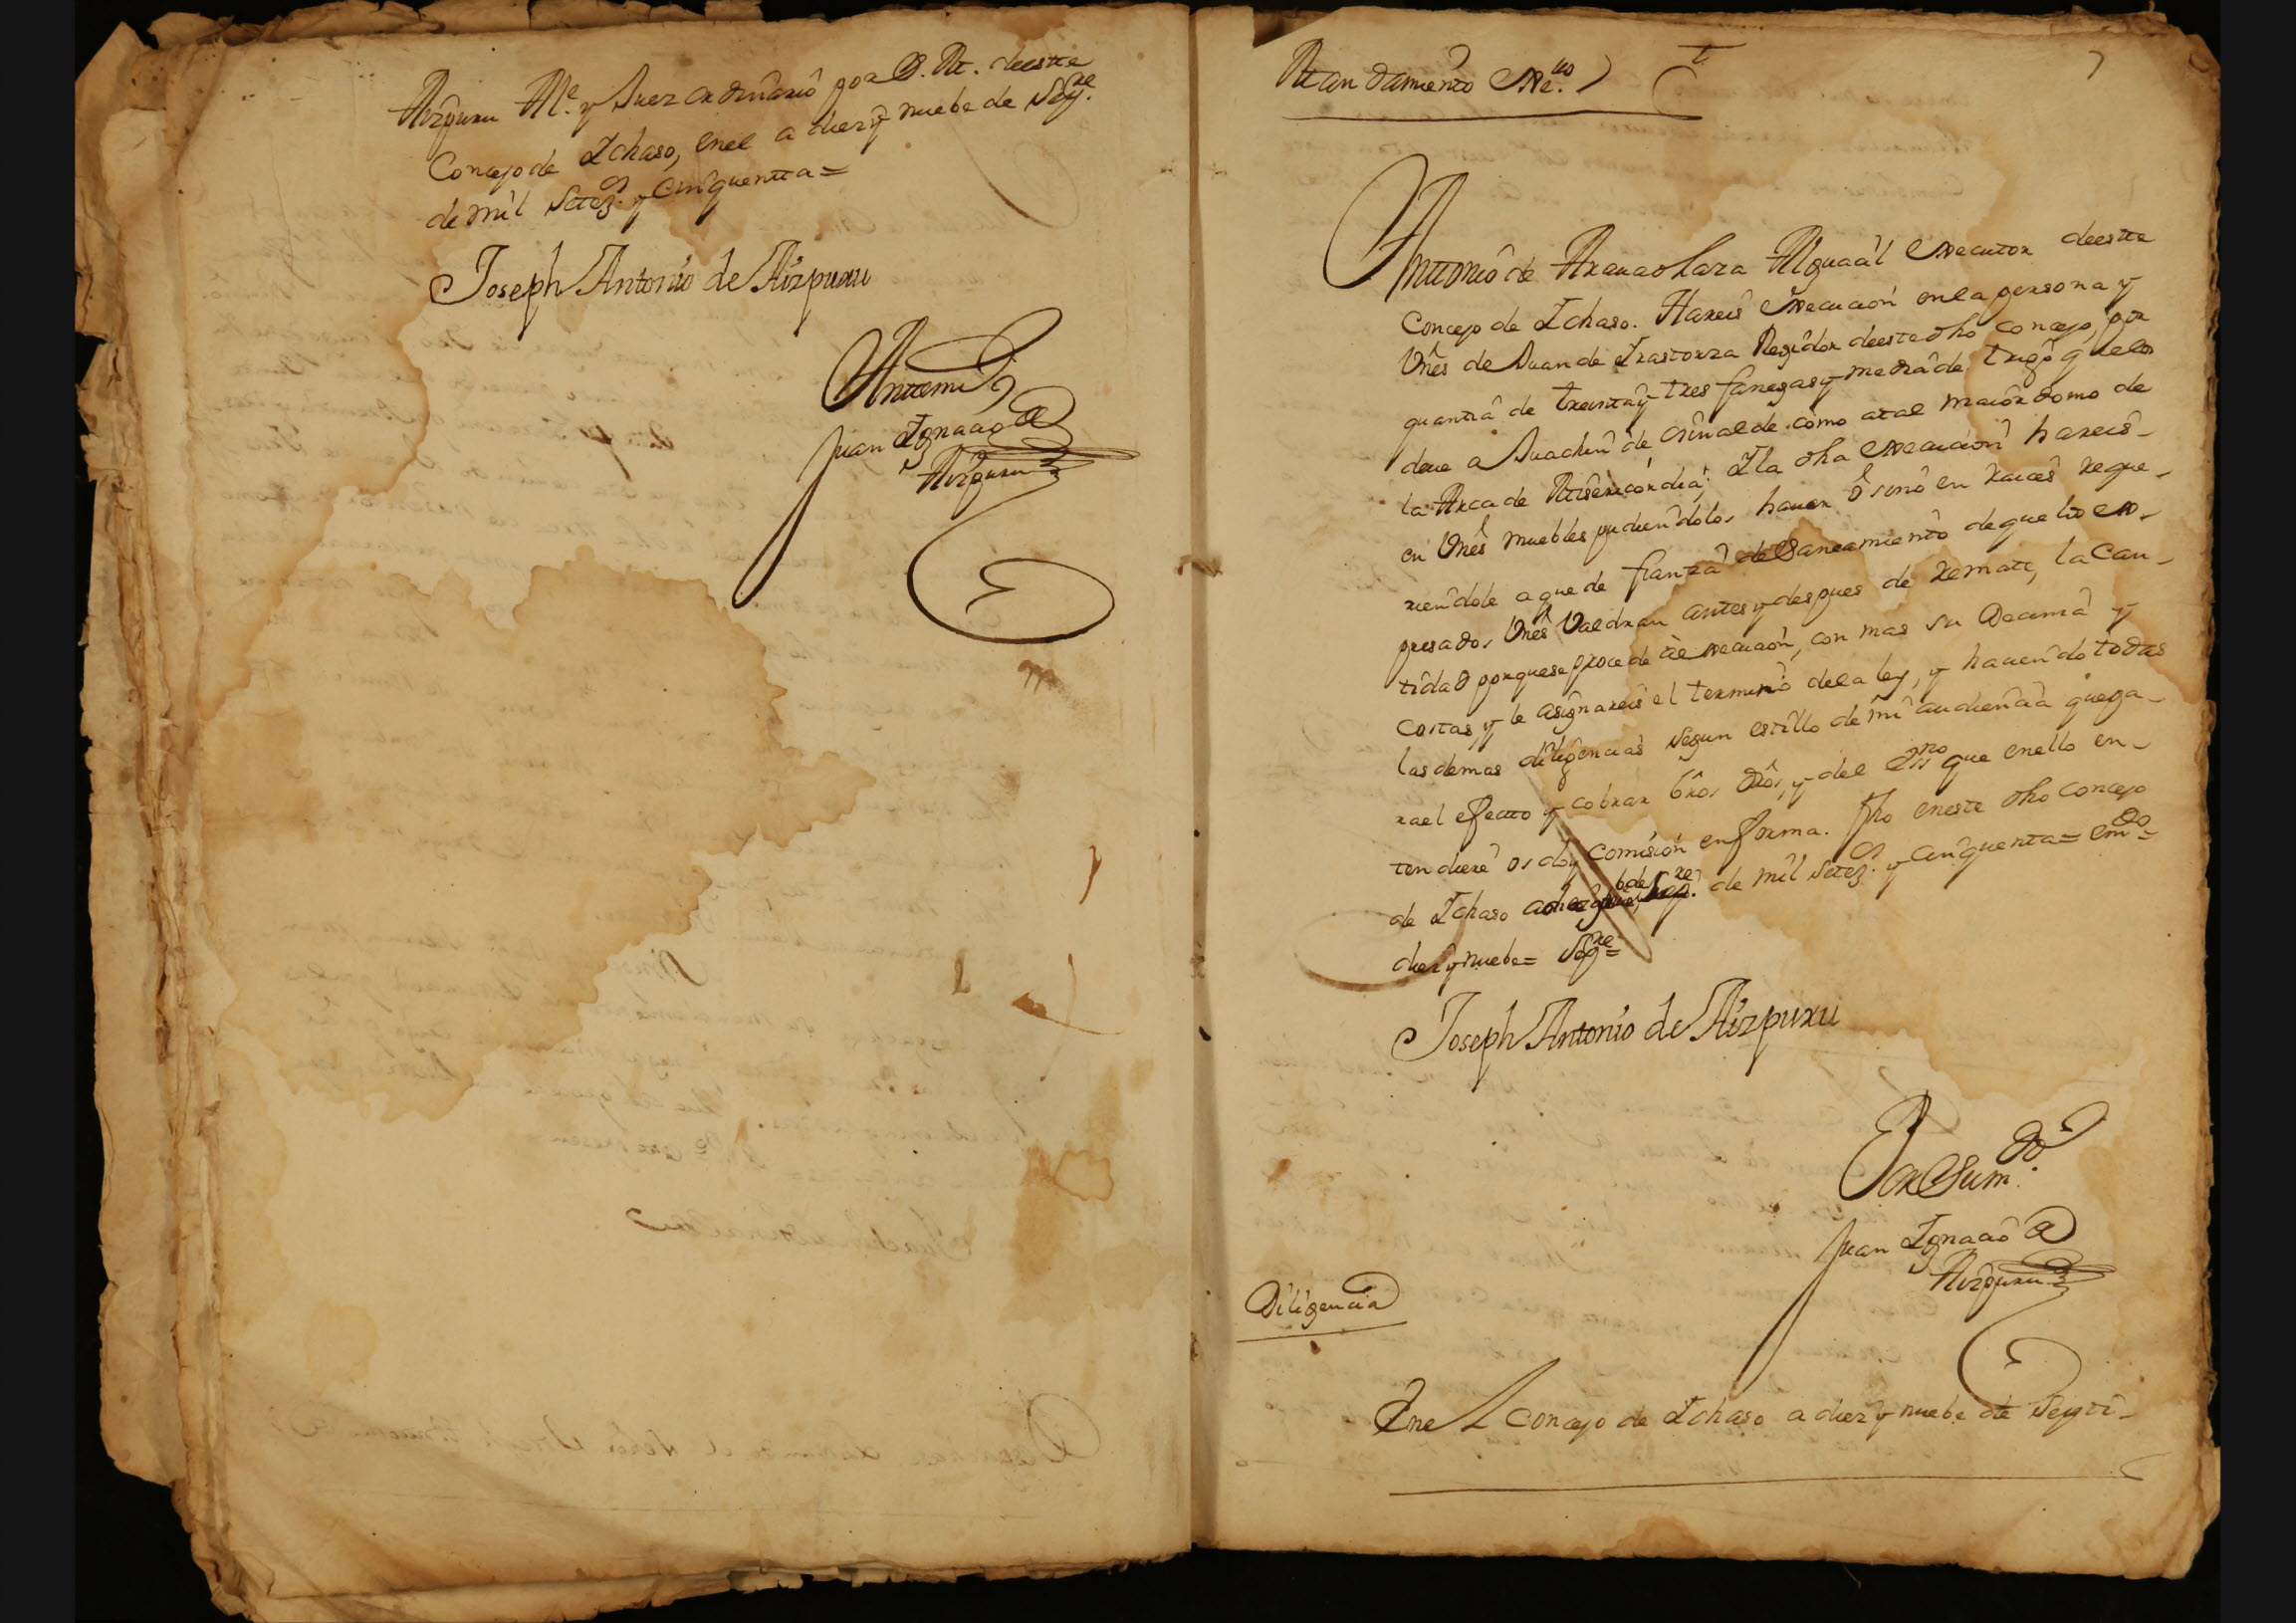 Aizpuru Al.e y Juez ordinario por S. M. deeste
Concejo de Ichaso, enel a diez y nuebe de Sep.re
de mil Setez.s y Cinquentta=
Joseph Antonio de Aizpuru
Anttemi
Juan Ignacio de
Aizpuru
Mandamiento Exe.uo
7
Anttonio de Arana olaza Alguacil Executor deestte
Concejo de Ichaso. Hareis Execucion enla persona y
Vnes de Juan de Irastorza Regidor deeste dho concejo, por
quantia de treinta y tres fanegas y media de trigo q. eeste
deue a Juachin de Orinalde como atal maiordomo de
la Arca de Misericordia; I la dha execucion hareis
en Vnes muebles pudiendolos hauer ô sino en raices reque-
riendole a que de fianza de Saneamiento de que los ex-
presados Vnes Valdran antes y despues de remate, la Can-
tidad porquese procede âe execucion, con mas su Decima y
costas, y le asignareis el termino dela ley, y haciendo todas
las demas diligencias segun estillo de mi audiencia quepa-
ra el efectto y cobrar bros dros, y del essno que enello en-
tendiere os doy comision en forma. fho eneste dho Concejo
de Ichaso a diez y nuebe de Sep.re de mil Setez.s y cinquenta= em.do
diez y nuebe= Sep.re=
Joseph Antonio de Aizpuru
Por Sum.do
Juan Ignacio de
Aizpuru
Diligencia
Enel Concejo de Ichaso a diez y nuebe de Septi-